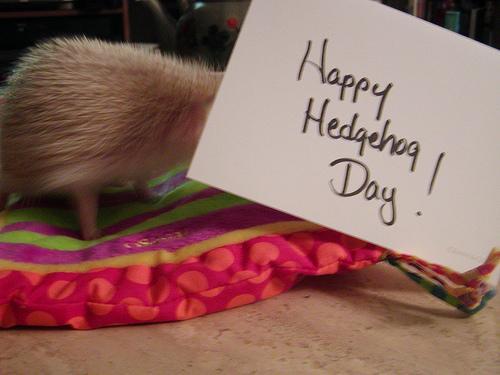 Happy
Hedgehog
Day!